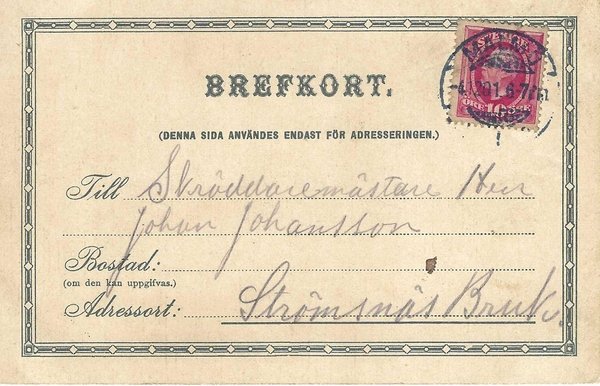 BREFKORT.
(DENNA SIDA ANVÄNDES ENDAST FÖR ADRESSERINGEN.)
Till Skräddaremästare Herr
Johan Johansson
Bostad:
(om den kan uppgifvas.)
Adressort: Strömsnäs Bruk.